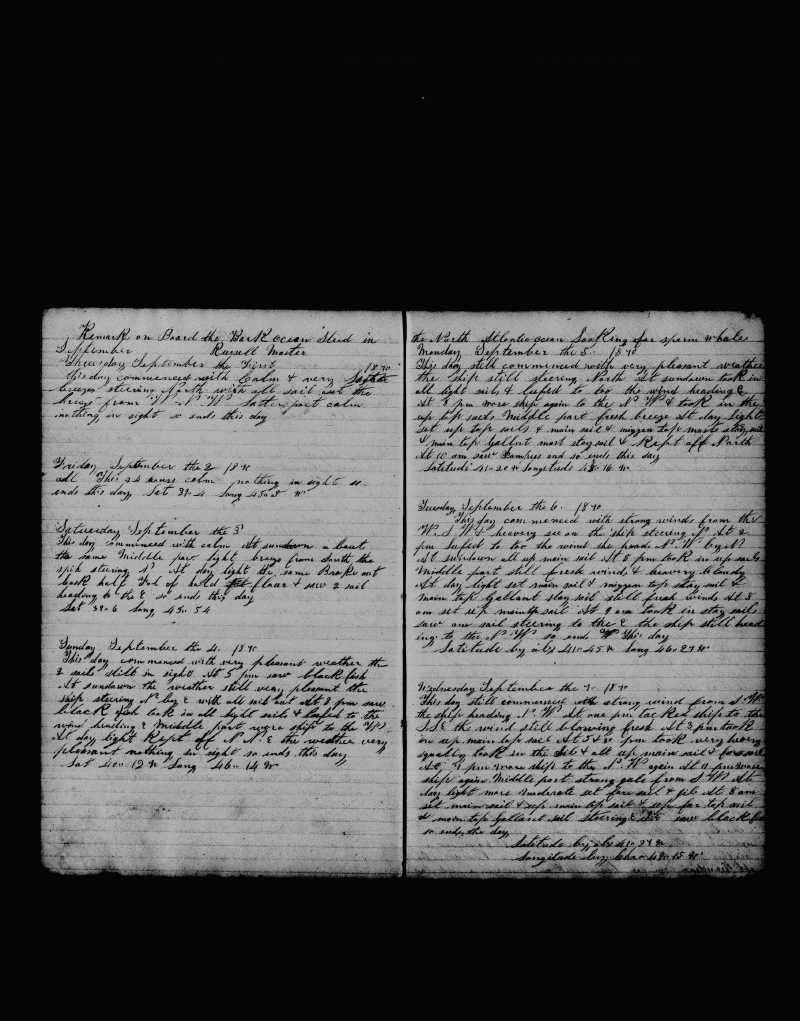 Remark on Board the Bark ocean Steed in
September Russell Master
Thursday September the First 1870
this day commenced with Calm & very
breeze steering North with all sail out the
breeze from Latter part calm
nothing in sight so ends this day
Friday September the 2 1870
all This 24 hours calm nothing in sight so
ends this day Lat 39-4 Long
Saturday September the 3
This day commenced with calm At sundown a bout
the same Middle part light from South the
ship steering N At day light the same Broke out
took half of flour & saw 2 sail
heading to the E so ends this day
Lat 39=6 Long 45=54
Sunday September the 4. 1870
This day commenced with very pleasant weather the
2 sails still in sight At 5 pm saw black fish
At sundown the weather still very pleasant the
ship steering N by E with all sail out At 8 pm saw
black fish took in all light sails & lufed to the
wind heading E Middle part wore ship to the
At day light Kept off N N E the weather very
pleasant nothing in sight so ends this day
Lat 40=12 N Long 46=14 W
the North Atlantic ocean Looking for sperm whale
Monday September the 5. 1870
This day still commenced with very pleasant weather
the ship still steering North At sundown took in
all light sails & lufed to too the wind heading E
At 8 pm wore ship again to the N W & took in the
up top sails Middle part fresh breeze At day light
set up top sails & main sail & mizzen top mast stay sail
& main top Gallent mast stay sail & Kept off North
At 10 am saw Campus and so ends this day
Latitude 41=20 N Longitude 46=16 W
Tuesday September the 6. 1870
This day commenced with strong winds from the
W.S.W & heavery sea on the ship steering N At 2
pm Lufed to too the wind the heade N.W by N
At sundown all up main sail At 8 pm took in up sails
Middle part still fresh winds & heavery & cloudy
At day light set main sail & mizzen top stay sail &
main top Gallant stay sail still fresh winds At 8
am set up main top sail At 9 am took in stay sails
saw one sail steering to the E the ship still head
ing to the N.W so end This day
Latitude by obs 41=45 N Long 46=27 W
Wednesday September the 7. 1870
This day still commenced with strong wind from S.W
the ship heading N.W At one pm tacked ship to the
S.S.E the wind still blowing fresh At 3 pm took
in up main top sail At 5 pm took very heavy
squally took in the & all up main sail &
At pm wore ship to the N.W again At 11 pm wore
ship again Middle part strong gale from S.W At
day light more moderate set fore sail & jib At 8 am
set main sail & up main top sail & up for top sail
& main top Gallant sail steering saw black
so ends the day
Latitude by obs 41=37 N
Longitude by Chro 48=15 W